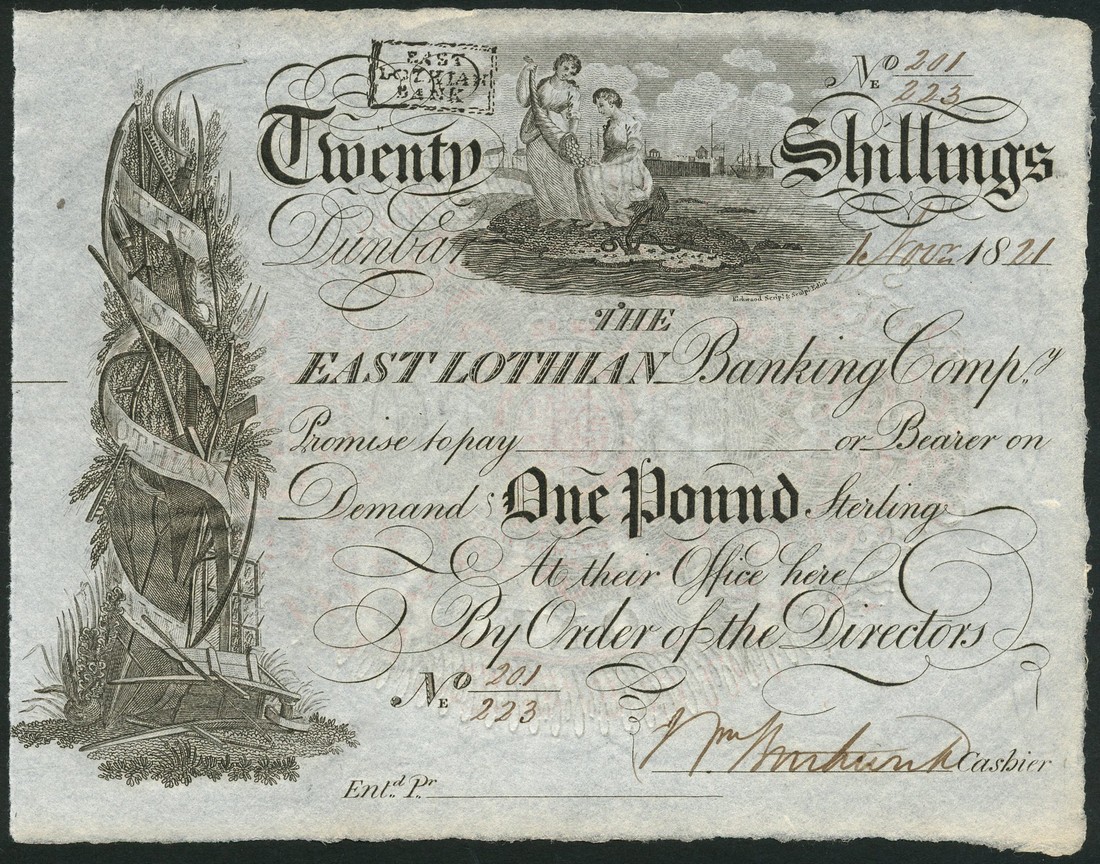 EAST
LOTHIAN
BANK
No 201
NE 223
Twenty Shillings
Dunbar 1 Novr. 1821
Kirkwood Script. & Sculpt. Edinr.
THE
EAST LOTHIAN Banking Compy.
Promise to pay or Bearer on
Demand One Pound Sterling
At their Office here
By Order of the Directors
No 201
NE 223
Wm Cashier
Entd. Pr.
THE
EAST
LOTHIAN